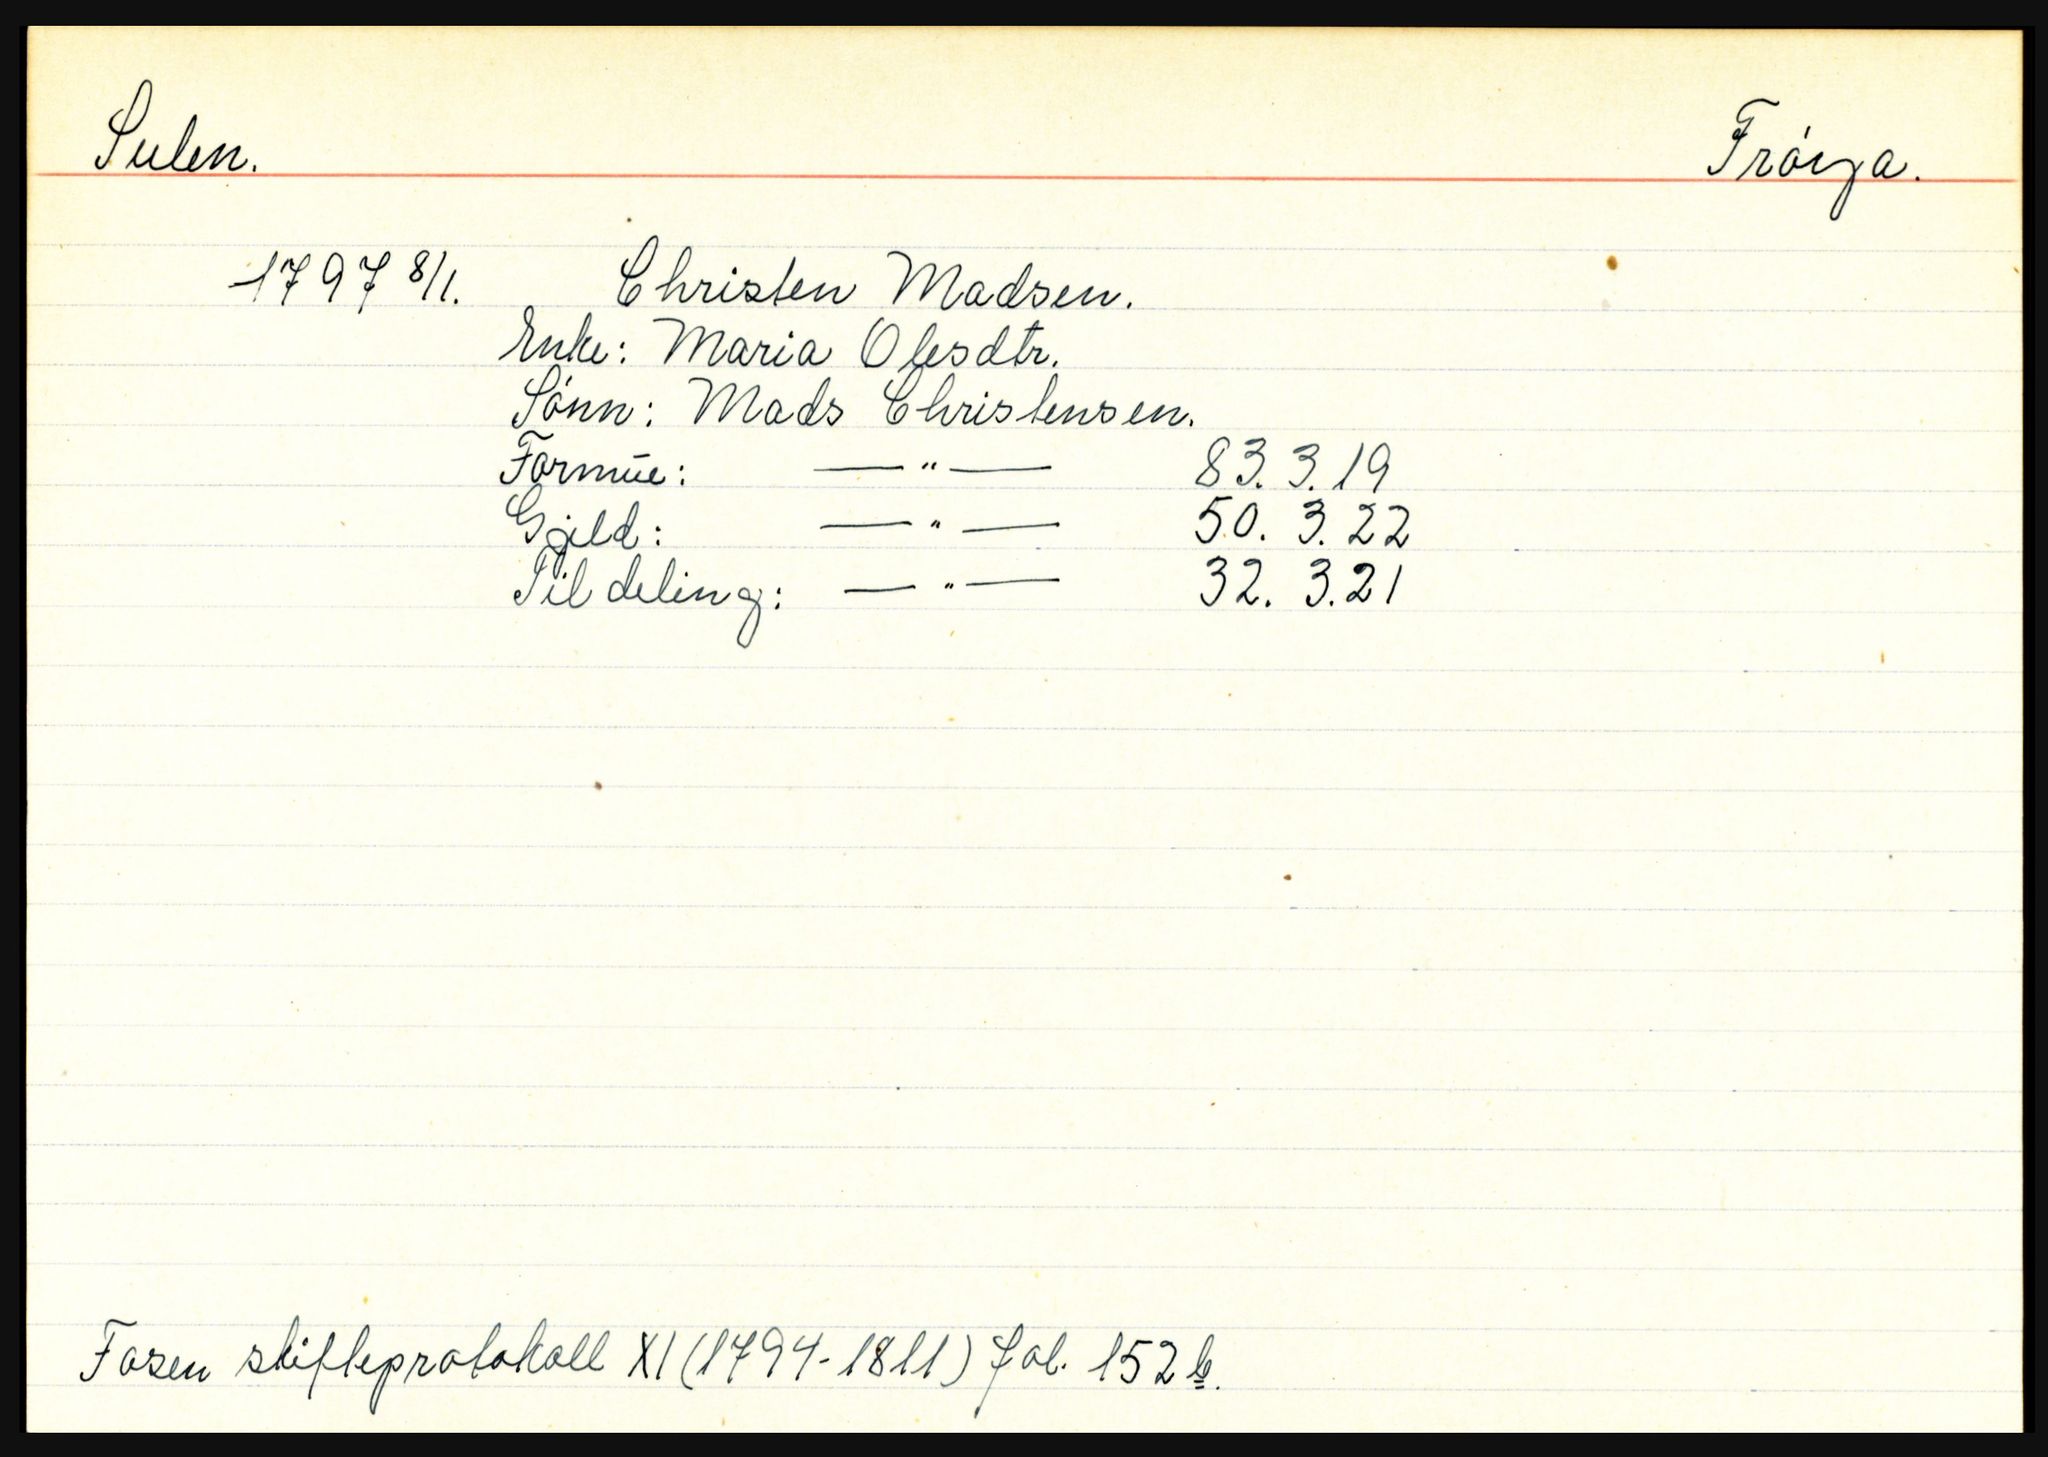 Sulen. Fröya.
1797 8/1. Christen Madsen.
Enke: Maria Olesdtr.
Sónn: Mads Christensen.
Formue: — " — 83. 3. 19
Gjeld: — " — 50. 3. 22
Til deling: — " — 32. 3. 21
Fosen skifteprotokoll XI (1794-1811) fol. 152 b.